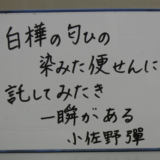 白樺の匂ひの
染みた便せんに
託してみたき
一瞬がある
小佐野彈